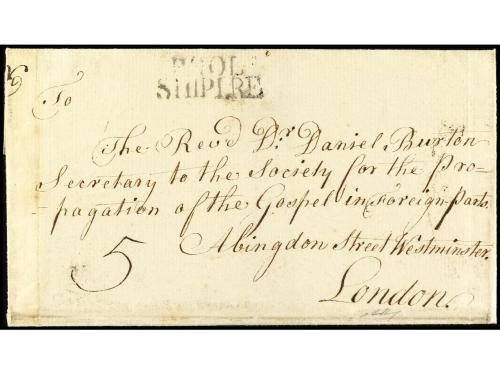 POOL
SHIP LRE
To
The Revd Dr. Daniel Burton
Secretary to the Society for the Pro-
-pagation of the Gospel in Foreign Parts.
Abingdon Street Westminster.
5
London.